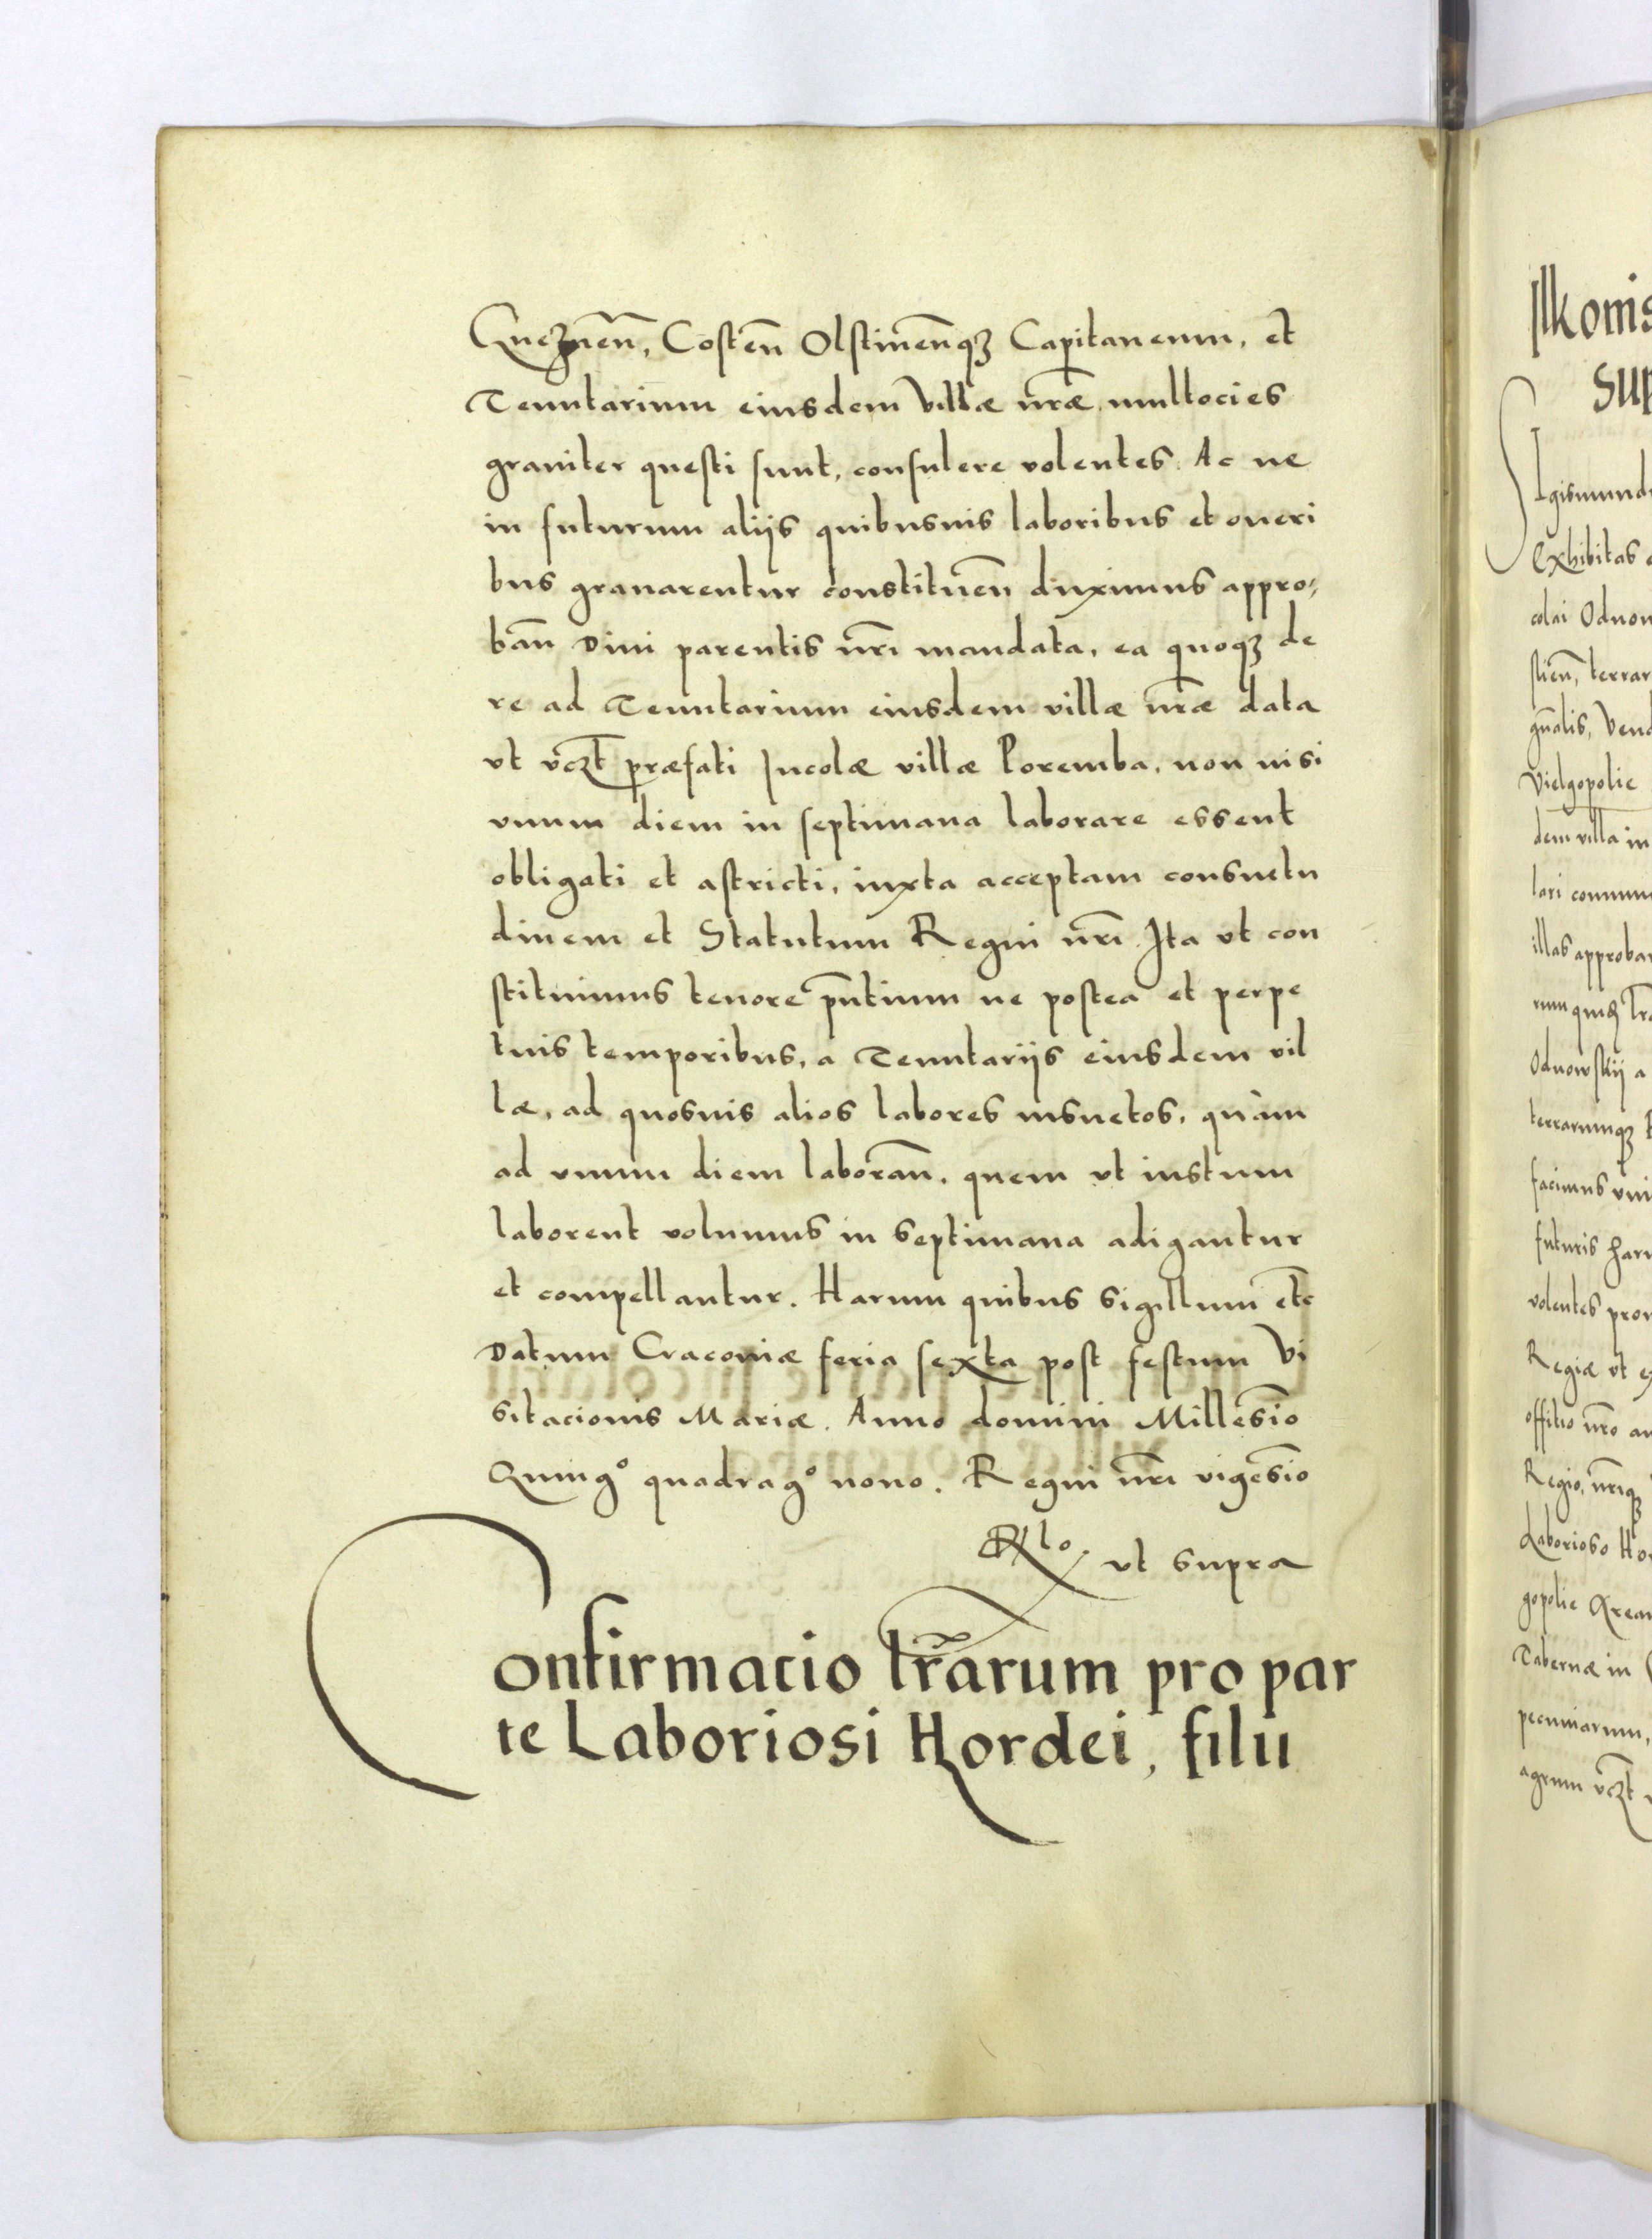 Gneznen̄, Costen̄ Olstinen̄qꝫ Capitaneum, et
Tenutarium eiusdem Villæ nr̄æ multocies
grauiter questi sunt, consulere volentes. Ac ne
in futurum aliis quibusuis laboribus et oneri
bus grauarentur constituen̄ duximus appro⸗
ban̄ Diui parentis nr̄i mandata, ea quoqꝫ de
re ad Tenutarium eiusdem villæ nr̄æ data
vt vcꝫt præfati Incolæ villæ Poremba, non nisi
vnum diem in septimana laborare essent
obligati et astricti, iuxta acceptam consuetu
dinem et Statutum Regni nr̄i Ita vt con
stituimus tenore pn̄tium ne postea et perpe
tuis temporibus, a Tenutariis eiusdem vil
læ, ad quosuis alios labores insuetos, quàm
ad vnum diem laboran̄, quem vt iustum
laborent volumus in septimana adigantur
et compellantur. Harum quibus sigillum etc
Datum Cracouiæ feria sexta post festum Vi
sitacionis Mariæ. Anno domini Millesīo
Quingº quadragº nono. Regni nr̄i vigesīo
Rlo. vt supra
Confirmacio lr̄arum pro par
te Laboriosi Hordei, filii
Ilkonis
sup
Sigismund
Exhibitas
colai Odnow
stien̄, terrar
gn̄alis, Vend
Vielgopolie
dem villa in
lari commu
illas approba
Odnowskij a
terrarumqꝫ
facimus vni
futuris har
volentes pro
Regiæ vt e
offitio nr̄o au
Regio, nr̄iqꝫ
Laborioso Ho
gopolie
Tabernæ in
pecuniarum,
agrum vcꝫt